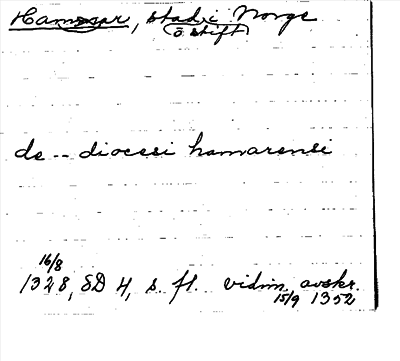 Hammar, stad i Norge
(o stift)
de -- diocesi hamarensi
16/8
1328, SD 4, s. fl. vidim. avskr.
15/9 1352